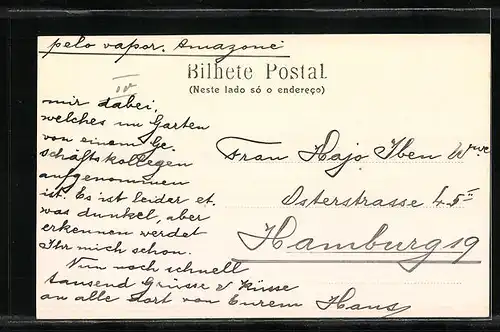 pelo vapor. Amazone
Bilhete Postal
(Neste lado só o endereço)
mir dabei,
welches im Garten
von einem Ge-
schäftskollegen
aufgenommen
ist. Es ist leider et.
was dunkel, aber
erkennen werdet
Ihr mich schon.
Nun noch schnell
tausend Grüsse & Küsse
an alle dort von Eurem Hans
Frau Hajo Iben Wwe
Osterstrasse 45 II
Hamburg 19